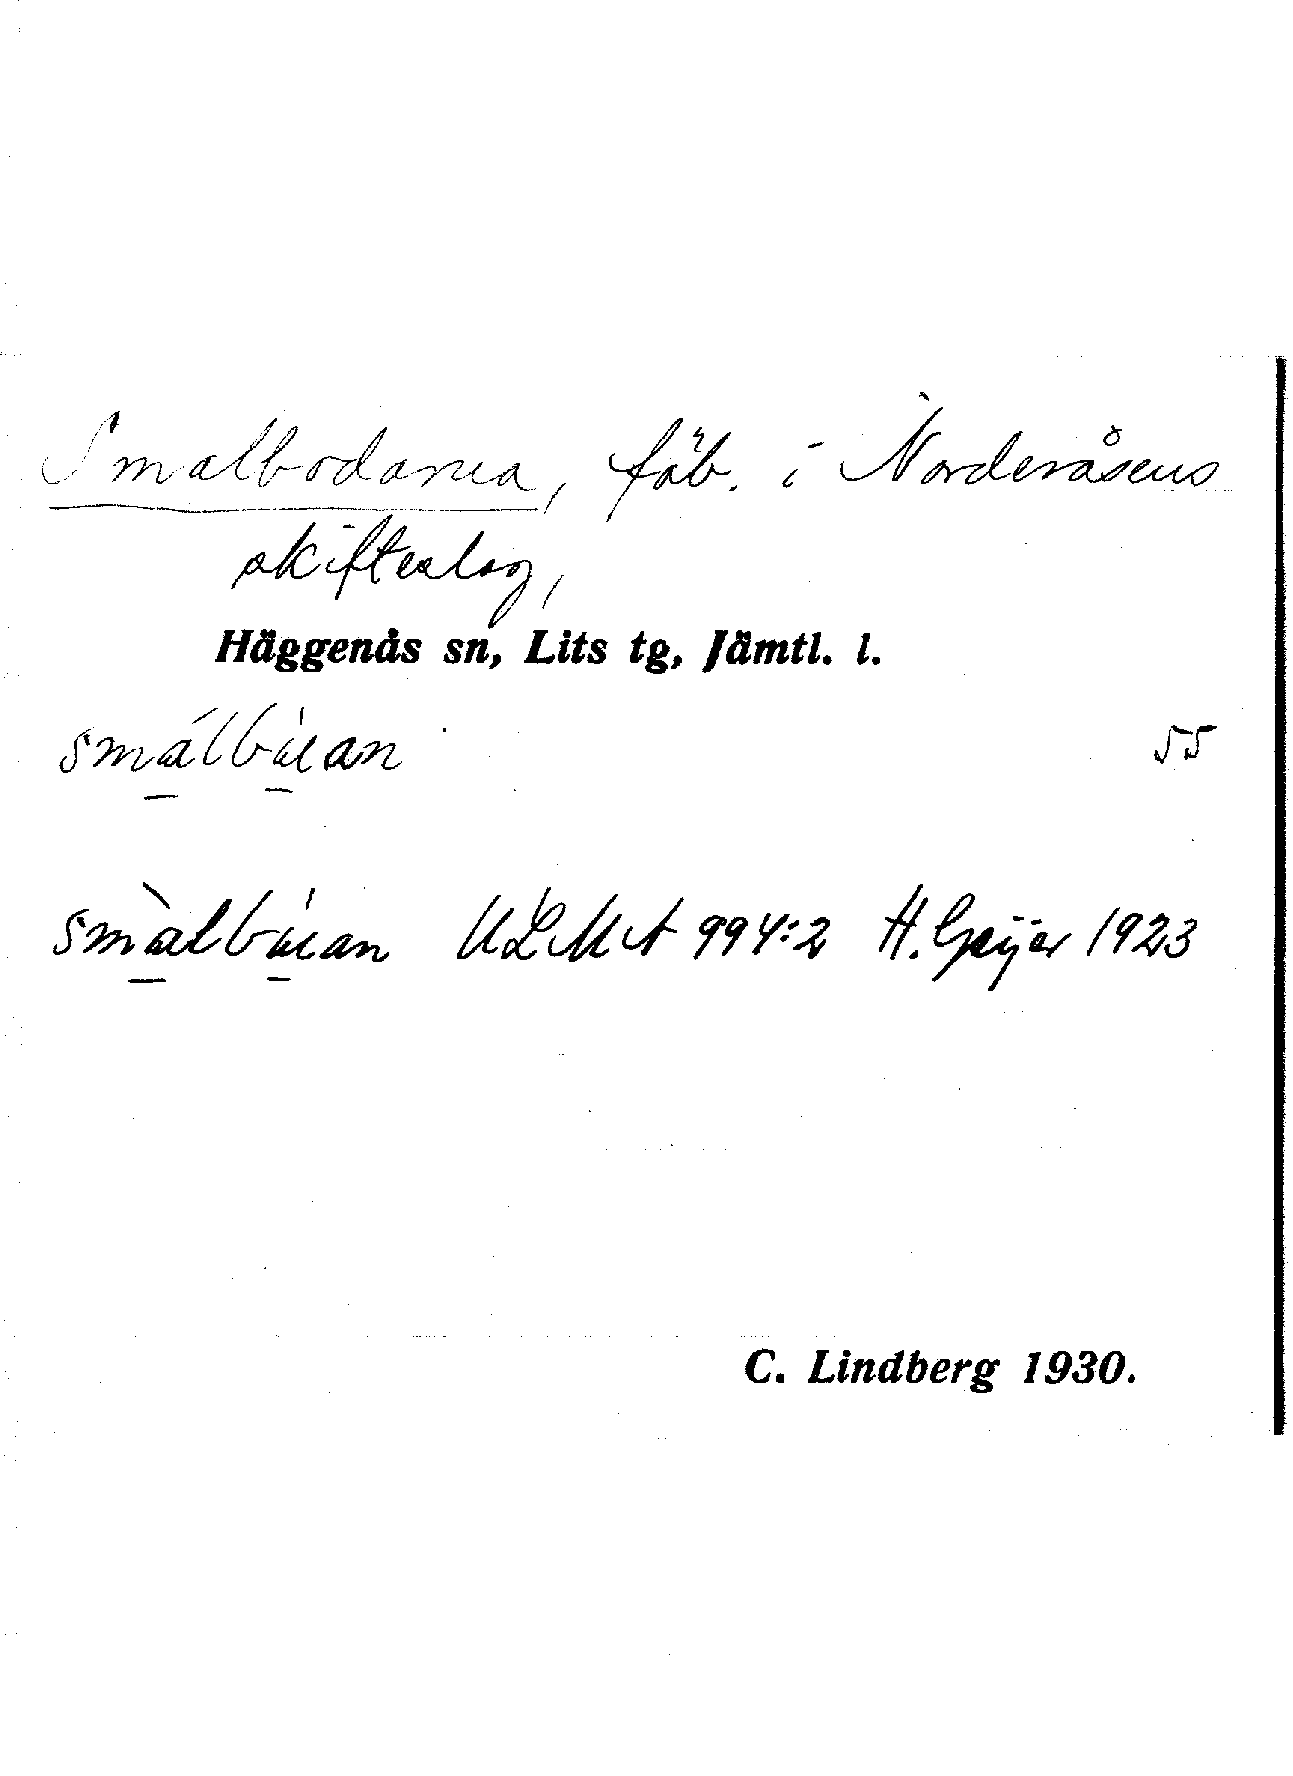 Smalbodarna, fäb. i Norderåsens
skifteslag,
Häggenås sn, Lits tg, Jämtl. l.
55
ULMA 994:2 H. Geijer 1923
C. Lindberg 1930.